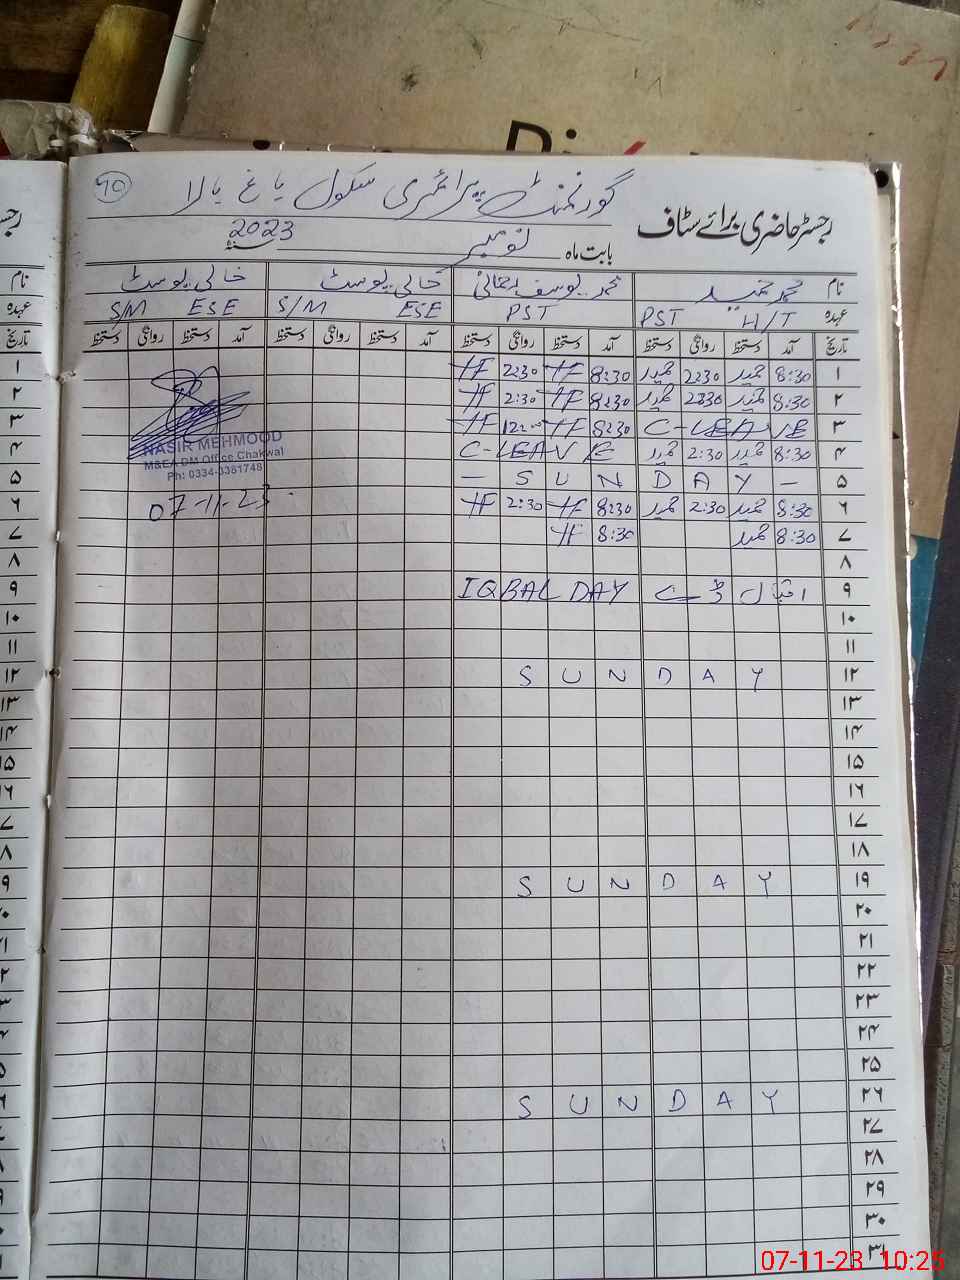 گورنمنٹ پرائمری سکول باغ بالا
10
رجسٹر حاضری برائے سٹاف
بابت ماہ نومبر سنہ 2023
نام محمد حمید محمد یوسف خالی پوسٹ خالی پوسٹ
عہدہ PST H/T PST S/M ESE S/M ESE
تاریخ آمد دستخط روانگی دستخط آمد دستخط روانگی دستخط آمد دستخط روانگی دستخط آمد دستخط روانگی دستخط
۱ 8:30 حمید 2:30 حمید 8:30 YF 2:30 YF
۲ 8:30 حمید 2:30 حمید 8:30 YF 2:30 YF
۳ C-LEAVE 8:30 YF YF
۴ 8:30 حمید 2:30 حمید C-LEAVE
۵ — SUNDAY —
۶ 8:30 حمید 2:30 حمید 8:30 YF 2:30 YF
۷ 8:30 حمید 8:30 YF
۸
۹ اقبال ڈے IQBAL DAY
۱۰
۱۱
۱۲ SUNDAY
۱۳
۱۴
۱۵
۱۶
۱۷
۱۸
۱۹ SUNDAY
۲۰
۲۱
۲۲
۲۳
۲۴
۲۵
۲۶ SUNDAY
۲۷
۲۸
۲۹
۳۰
۳۱
NASIR MEHMOOD
M&EA DM Office Chakwal
Ph: 0334-3381748
07-11-23
07-11-23 10:25